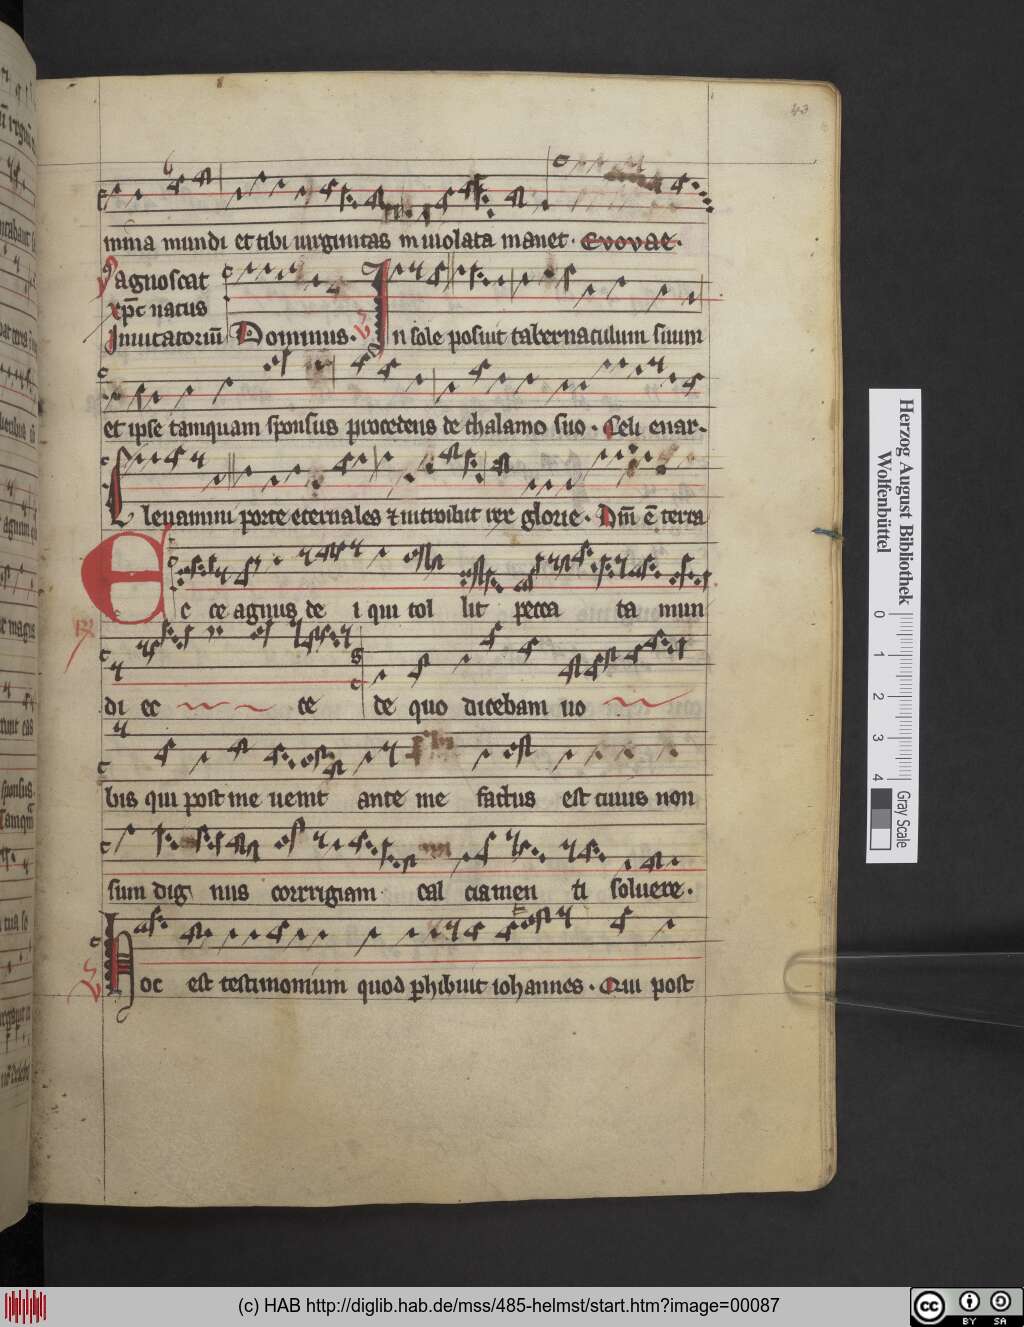 43
mma mundi et tibi uirginitas inuiolata manet · Evovae ·
agnoscat
xp̄c natus
Inuitatoriū Dominus · In sole posuit tabernaculum suum
et ipse tamquam sponsus procedens de thalamo suo · Celi enar-
Leuamini porte eternales ⁊ introibit rex glorie · Dn̄i ē terra
Ecce agnus de i qui tol lit pecca ta mun
di ec ce de quo dicebam uo
bis qui post me uenit ante me factus est cuius non
sum dig nus corrigiam cal ciamen ti soluere ·
Hoc est testimonium quod phibuit iohannes · Qui post
Herzog August Bibliothek
Wolfenbüttel
0 1 2 3 4
Gray Scale
(c) HAB http://diglib.hab.de/mss/485-helmst/start.htm?image=00087
cc BY SA